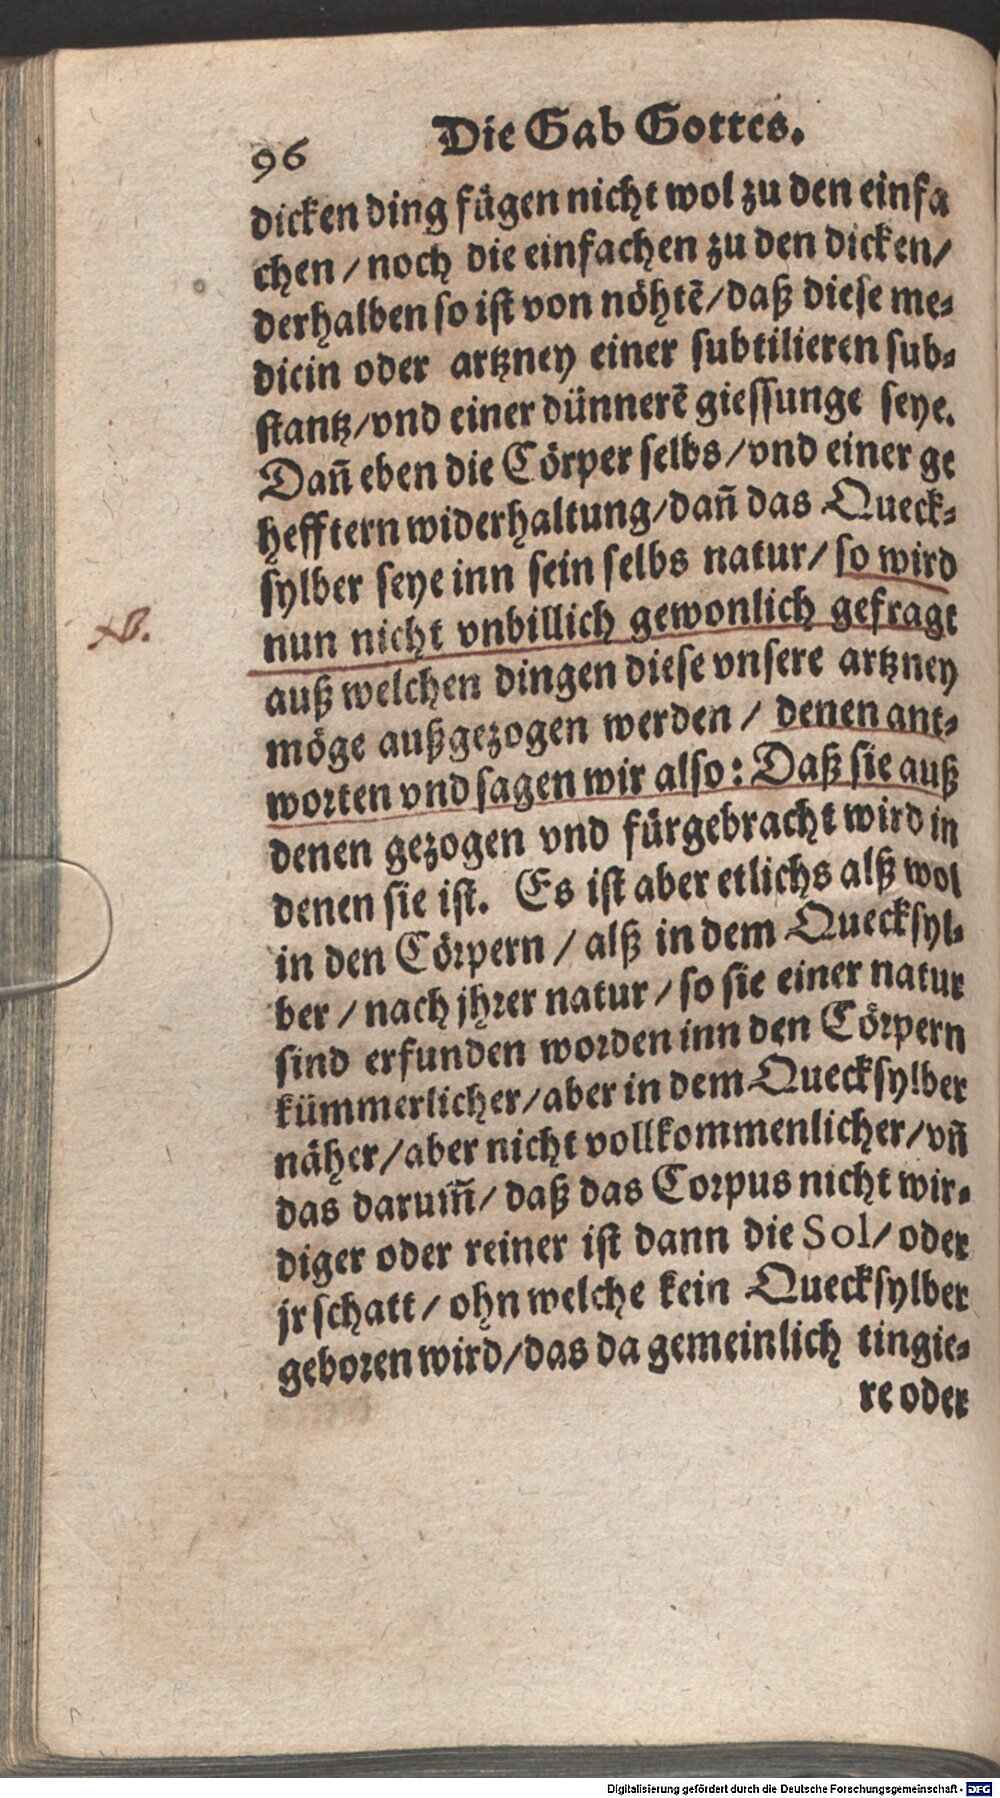 96
Die Gab Gottes.
dicken ding fügen nicht wol zu den einfa
chen / noch die einfachen zu den dicken/
derhalben so ist von nöhtẽ/daß diese me-
dicin oder artzney einer subtilieren sub-
stantz/vnd einer dünnerẽ giessunge seye.
Dañ eben die Cörper selbs/vnd einer ge
hefftern widerhaltung/dañ das Queck-
sylber seye inn sein selbs natur/ so wird
nun nicht vnbillich gewonlich gefragt
auß welchen dingen diese vnsere artzney
möge außgezogen werden / denen ant-
worten vnd sagen wir also: Daß sie auß
denen gezogen vnd fürgebracht wird in
denen sie ist. Es ist aber etlichs alß wol
in den Cörpern / alß in dem Quecksyl-
ber / nach jhrer natur / so sie einer natur
sind erfunden worden inn den Cörpern
kümmerlicher/aber in dem Quecksylber
näher/aber nicht vollkommenlicher/vñ
das darum̃/ daß das Corpus nicht wir-
diger oder reiner ist dann die Sol/ oder
jr schatt / ohn welche kein Quecksylber
geboren wird/das da gemeinlich tingie-
re oder
NB.
Digitalisierung gefördert durch die Deutsche Forschungsgemeinschaft - DFG